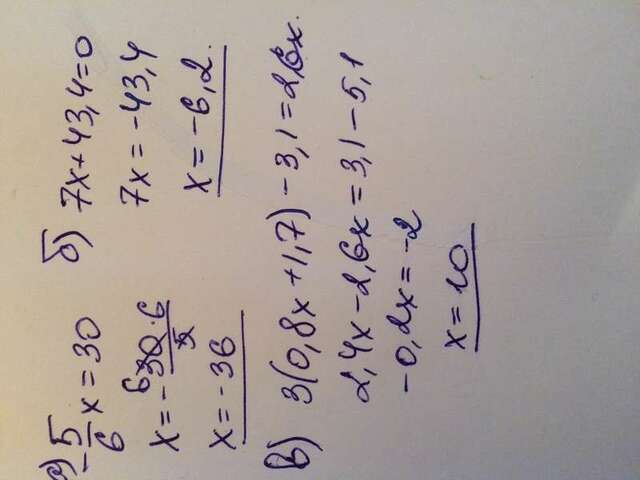 а) -5/6 x = 30
x = -30·6/5 6
x = -36
б) 7x + 43,4 = 0
7x = -43,4
x = -6,2.
в) 3(0,8x + 1,7) - 3,1 = 2,6x.
2,4x - 2,6x = 3,1 - 5,1
-0,2x = -2
x = 10